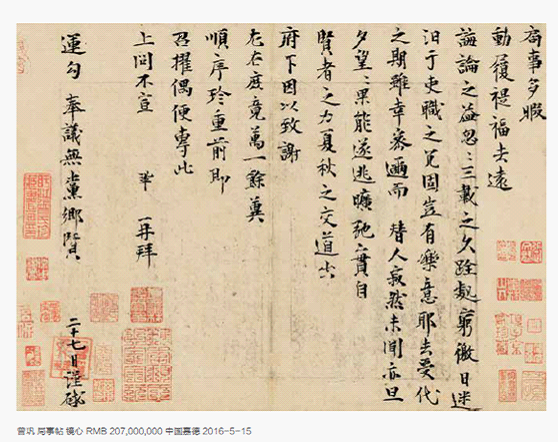 局事多暇
動履禔福去遠
誨論之益忽〻三載之久跧處窮徼日迷
汨于吏職之冗固豈有樂意耶去受代
之期雖幸密邇而替人寂然未聞亦旦
夕望〻果能遂逃曠弛實自
賢者之力夏秋之交道出
府下因以致謝
左右庶竟萬一餘冀
順序珍重前即
召擢偶便專此
上問不宣 鞏 再拜
運勾奉議無黨鄉賢 二十七日謹啟
曾巩 局事帖 镜心 RMB 207,000,000 中国嘉德 2016-5-15